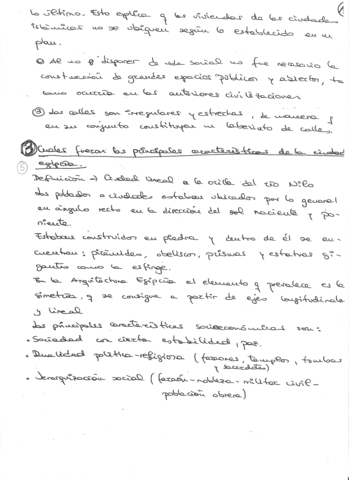 lo último. Esto explica q las viviendas de las ciudades
islámicas no se ubiquen según lo establecido en un
plan.
Al no disponer de vida social no fue necesario la
construcción de grandes espacios públicos y abiertos,
como ocurría en las anteriores civilizaciones
③ Las calles son irregulares y estrechas, de manera q
en su conjunto constituyen un laberinto de calles.
Cuales fueron las principales características de la ciudad
egipcia.
⑤
Definición → Ciudad lineal a la orilla del río Nilo
Los poblados o ciudades estaban ubicados por lo general
en ángulo recto en la dirección del sol naciente y po-
niente.
Estaban construidos en piedra y dentro de él se en-
cuentran: pirámides, obeliscos, y estatuas gi-
gantes como la esfinge.
En la Arquitectura Egipcia el elemento q prevalece es la
simetría, q se consigue a partir de ejes longitudinales
y lineal
Las principales características socioeconómicas son:
• Sociedad con cierta estabilidad, paz.
• Dualidad política-religiosa (faraones, templos, tumbas
y sacerdotes)
• Jerarquización social (faraón-nobleza-militar civil-
población obrera)